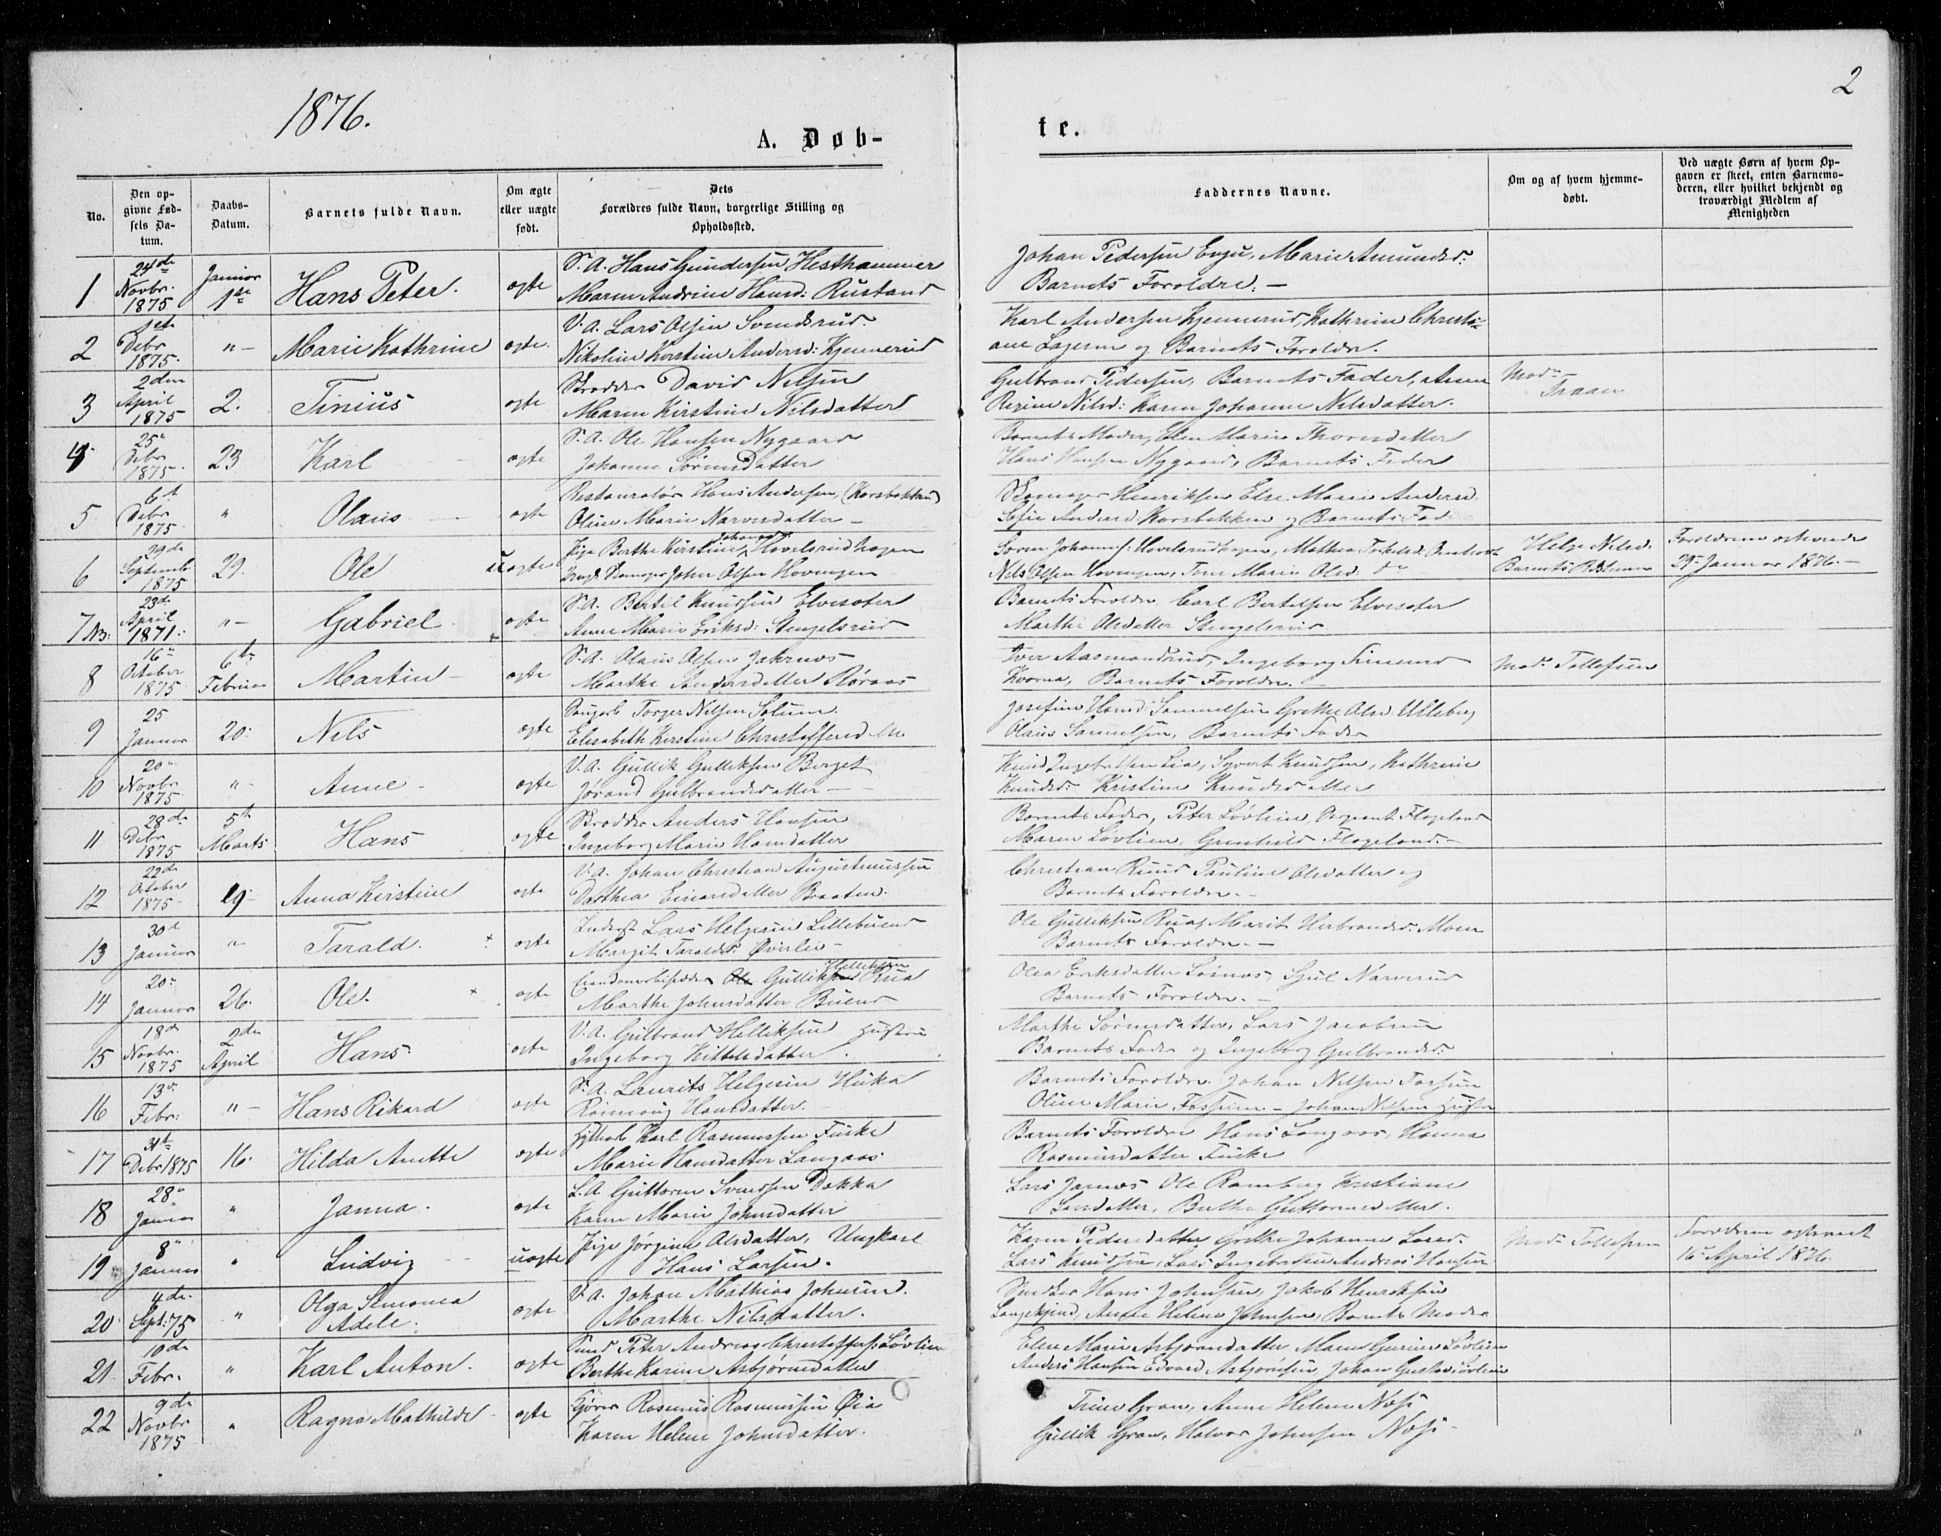 1876.
2
A. Døb-
te.
No.
Den op-
givne Fød-
sels Da-
tum.
Daabs-
Datum.
Barnets fulde Navn.
Om ægte
eller uægte
født.
Dets
Forældres fulde Navn, borgerlige Stilling og
Opholdssted.
Faddernes Navne.
Om og af hvem hjemme-
døbt.
Ved uægte Børn af hvem Op-
gaven er skeet, enten Barnemo-
deren, eller hvilket bekjendt og
troværdigt Medlem af
Menigheden
1 24de Novbr. 1875 Januar 1ste Hans Peter. ægte
S. A. Hans Gundersen Hesthammer
Maren Andrine Hansd: Rustand
Johan Pedersen Enger, Marie Amundsd:
Barnets Forældre. —
2 1ste Debr 1875. "— Marie Kathrine ægte.
V. A. Lars Olsen Svendsrud.
Nikoline Kirstine Andersd: Kjennerud
Karl Andersen Kjennerud, Kathrine Christi-
ane og Barnets Forældre.
3 2den April 1875 2. Tinius ægte
Skrædder David Nilsen
Maren Kirstine Nilsdatter
Gulbrand Pedersen, Barnets Fader, Anne
Regine Nilsd: Karen Johanne Nilsdatter.
Mad: Fraan
4 25" Debr 1875. 23 Karl ægte
S. A. Ole Hansen Nygaard
Johanne Sørensdatter
Barnets Moder, Elen Marie Thorsdatter
Hans Hansen Nygaard, Barnets Fader
5 6t Debr 1875 " Olaus ægte
Restauratør Hans Andersen, (Korsbakken)
Oline Marie Narvesdatter —
Henriksen Else Marie Andersd
Sofie Andersd Korsbakken og Barnets Fad:
6 29de Septemb 1875 29. Ole uægte
Pige Berthe Kirstine Johansd Hovelsrudhagen
Ungk. Johan Olsen Hovengen
Søren Johanns: Hovelsrudhagen, Mathea
Nils Olsen Hovengen, Tone Marie Olsd. do
Helge Nilsd.
Barnets
Forældrene
29 Januar 1876. —
7 NB: 23de April 1871. "— Gabriel ægte
S. A. Bertil Knudsen Elveseter
Anne Marie Eriksd: Stengelsrud
Barnets Forældre Carl Bertelsen Elveseter
Marthe Olsdatter Stengelsrud
8 16" October 1875 6te Februar Martin ægte
S. A. Olaus Olsen Jahrnos
Marthe Andersdatter Røraas
Iver Aasmundrud, Ingeborg
Kvorna, Barnets Forældre. —
Mad: Tollefsen
9 25 Januar 20. Nils ægte
Torger Nilsen Solum.
Elisabeth Kirstine Christoffersd
Josefine Hansd: Samuelsen Grethe Olsd Ulleberg
Olaus Samuelsen, Barnets Fader
10 20" Novbr. 1875 "— Anne ægte
V. A. Gullik Gulliksen Berget
Jørand Gulbrandsdatter —
Knud Ingebretsen Lia, Syvert Knudsen, Kathrine
Knudsd: Kristine Knudsdatter
11 28de Debr 1875 5te Marts Hans ægte
Skrædder Anders Hansen
Ingeborg Marie Hansdatter
Barnets Fader, Peter Løvlien, Flageland
Maren Løvlien, Gunhild Flageland. —
12 22de October 1875 19. Anna Kirstine ægte
V. A. Johan Christian Augustinussen
Dorthea Einarsdatter Braaten.
Christian Ruud Pauline Olsdatter og
Barnets Forældre. —
13 30te Januar " Tarald. + ægte
Inderst Lars Helgesen Lillebuend
Margit Taraldsd: Øverlie —
Ole Gulliksen Rua, Marit Herbrandsd: Moen
Barnets Forældre. —
14 20de Januar 26. Ole. + ægte
Gulliksen Halliksen Rua
Marthe Johnsdatter Buend
Olea Eriksdatter Narverud
Barnets Forældre. —
15 18de Novbr. 1875 2den April Hans. ægte
V. A. Gulbrand Halliksen
Ingeborg Kittelsdatter.
Marthe Sørensdatter, Lars Jacobsen
Barnets Fader og Ingeborg Gulbrandsd:
16 13de Febr: "— Hans Rikard ægte
S. A. Laurits Helgesen Heika
Hansdatter.
Barnets Forældre. Johan Nilsen Fossum
Oline Marie Fossum — Johan Nilsen
17 31te Debr 1875 16. Hilda Anette ægte
Karl Rasmussen Fuske
Marie Hansdatter Langaas
Barnets Forældre Hans Langaas, Hanna
Rasmusdatter Fuske
18 28" Januar " Janna. ægte
L. A. Guttorm Svendsen Dokka
Karen Marie Johnsdatter
Lars Jarnes Ole Ramberg Kristiane
Larsdatter, Berthe Guttormsdatter.
19 8" Januar " Ludvig uægte
Pige Jørgine Olsdatter, Ungkarl
Hans Larsen.
Karen Pedersdatter Grethe Johanne Larsd.
Lars Knudsen, Lars Ingebretsen Andreas Hansen
Mad: Tollefsen
Forældrene
16 April 1876.
20 4de Sept: 75 " Olga Simonea
Adele. ægte
V. A. Johan Mathias Johnsen.
Marthe Nilsdatter.
Snedker Hans Johnsen, Jakob Henriksen
Anne Helene Johnsen, Barnets Moder
21 10de Febr. " Karl Anton. ægte
Peter Andreas Christoffers: Løvlien
Berthe Karine Asbjørnsdatter
Elen Marie Asbjørnsdatter Maren Gurine Løvlien
Anders Hansen Edvard Asbjørnsen Johan Gustav Løvlien
22 9de Novbr 1875 " Ragna Mathilde ægte
Rasmus Rasmussen Øia
Karen Helene Johnsdatter.
Trine Gran, Anne Helene Næsi
Gullik Gran, Halvor Johnsen Næsi —